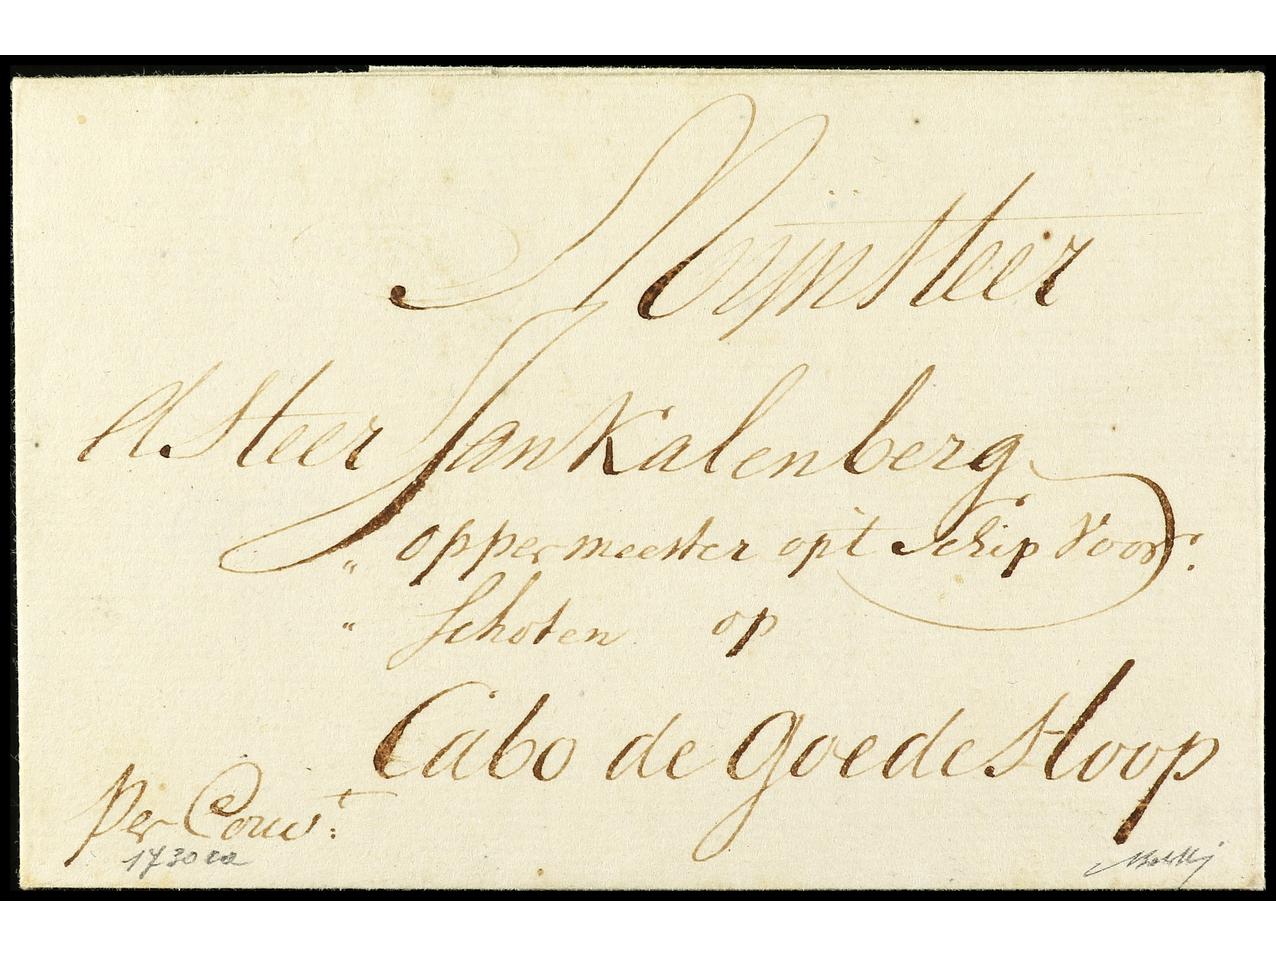 Mijn Heer
d'Heer Jan Kalenberg
„ oppermeester op't Schip Voor:
„ Schoten op
Cabo de Goede Hoop
Per Couv:t
1730 ca